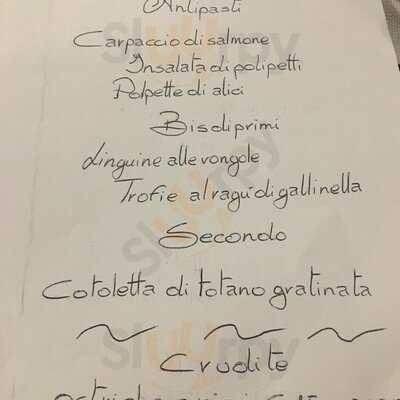 Antipasti
Carpaccio di salmone
Insalata di polipetti
Polpette di alici
Bis di primi
Linguine alle vongole
Trofie al ragù di gallinella
Secondo
Cotoletta di totano gratinata
Crudite